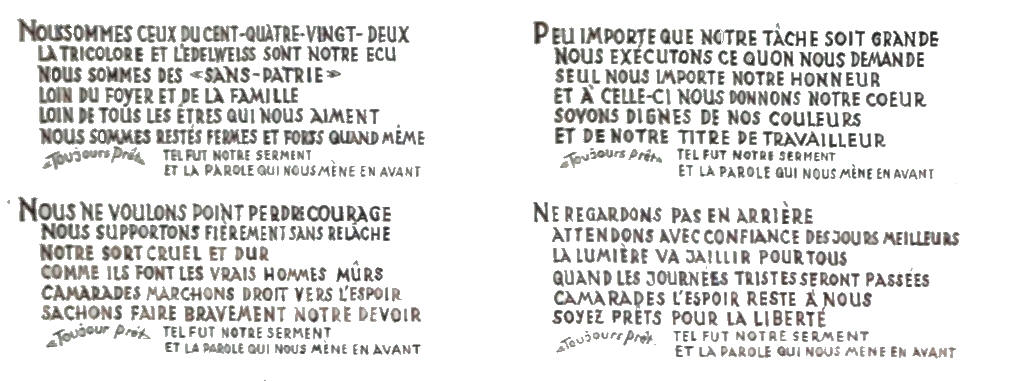 NOUS SOMMES CEUX DU CENT-QUATRE-VINGT- DEUX
LA TRICOLORE ET L'EDELWEISS SONT NOTRE ECU
NOUS SOMMES DES «SANS-PATRIE»
LOIN DU FOYER ET DE LA FAMILLE
LOIN DE TOUS LES ÊTRES QUI NOUS AIMENT
NOUS SOMMES RESTÉS FERMES ET FORTS QUAND MÊME
«Toujours Prêt» TEL FUT NOTRE SERMENT
ET LA PAROLE QUI NOUS MÈNE EN AVANT
NOUS NE VOULONS POINT PERDRE COURAGE
NOUS SUPPORTONS FIÈREMENT SANS RELÂCHE
NOTRE SORT CRUEL ET DUR
COMME ILS FONT LES VRAIS HOMMES MÛRS
CAMARADES MARCHONS DROIT VERS L'ESPOIR
SACHONS FAIRE BRAVEMENT NOTRE DEVOIR
«Toujour Prêt» TEL FUT NOTRE SERMENT
ET LA PAROLE QUI NOUS MÈNE EN AVANT
PEU IMPORTE QUE NOTRE TÂCHE SOIT GRANDE
NOUS EXÉCUTONS CE QUON NOUS DEMANDE
SEUL NOUS IMPORTE NOTRE HONNEUR
ET À CELLE-CI NOUS DONNONS NOTRE COEUR
SOYONS DIGNES DE NOS COULEURS
ET DE NOTRE TITRE DE TRAVAILLEUR
«Toujours Prêt» TEL FUT NOTRE SERMENT
ET LA PAROLE QUI NOUS MÈNE EN AVANT
NE REGARDONS PAS EN ARRIÈRE
ATTENDONS AVEC CONFIANCE DES JOURS MEILLEURS
LA LUMIÈRE VA JAILLIR POUR TOUS
QUAND LES JOURNÉES TRISTES SERONT PASSÉES
CAMARADES L'ESPOIR RESTE À NOUS
SOYEZ PRÊTS POUR LA LIBERTÉ
«Toujours Prêt» TEL FUT NOTRE SERMENT
ET LA PAROLE QUI NOUS MÈNE EN AVANT